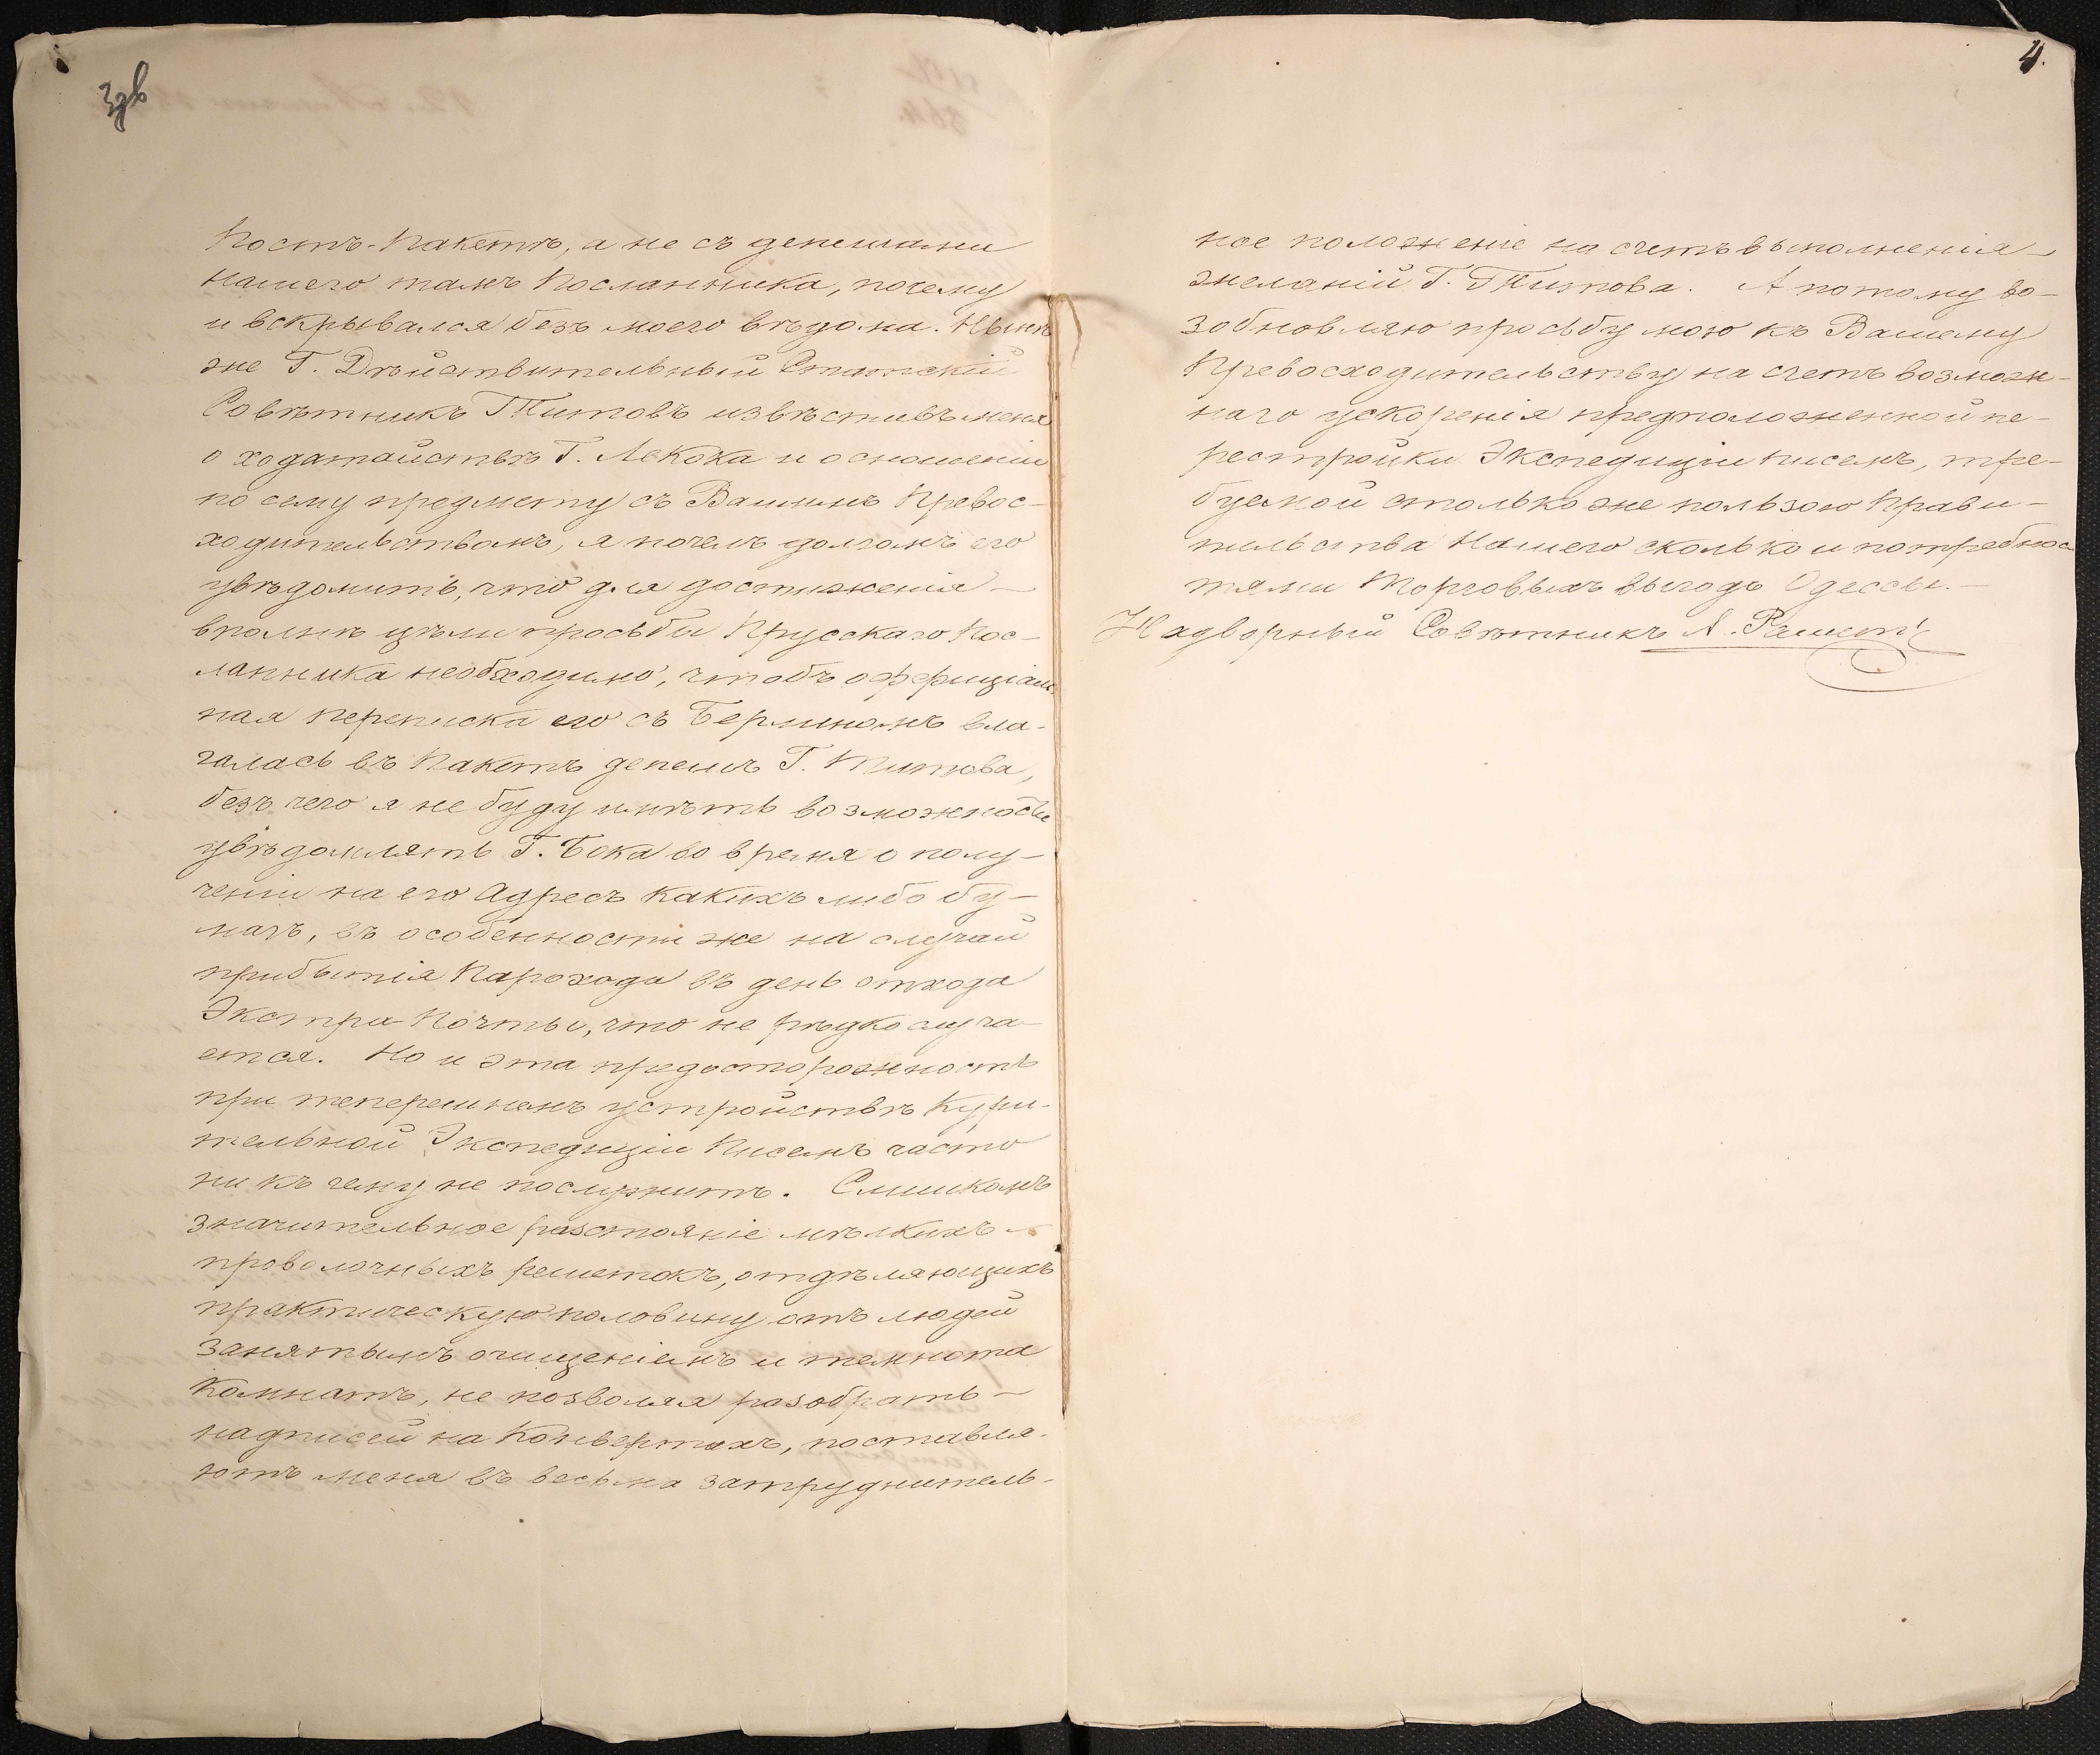 3зв
Постъ-Пакетъ, а не съ депешами
нашего тамъ Посланника, почему
и вскрывался безъ моего вѣдома. Нынѣ
же Г. Дѣйствительный Статскій
Совѣтникъ Титовъ извѣстивъ меня
о ходатайствѣ Г. Лекока и о сношеніи
по сему предмету съ Вашимъ Превос-
ходительствомъ, я почелъ долгомъ его
увѣдомить, что для достиженія
вполнѣ цѣли просьбы Прусскаго Пос-
ланника необходимо, чтобъ оффиціаль-
ная переписка его съ Берлиномъ вла-
галась въ Пакетъ депешъ Г. Титова,
безъ чего я не буду имѣть возможности
увѣдомлять Г. Бока во время о полу-
ченіи на его Адресъ какихъ либо бу-
магъ, въ особенности же на случай
прибытія Парохода въ день отхода
Экстра Почты, что не рѣдко случа-
ется. Но и эта предосторожность
при теперешнемъ устройствѣ Кури-
тельной Экспедиціи Писемъ часто
ни къ чему не послужитъ. Слишкомъ
значительное разстояніе мѣлкихъ
проволочныхъ решетокъ, отдѣляющихъ
практическую половину отъ людей
занятымъ очищеніемъ и темнота
Комнатъ, не позволяя разобрать
надписей на Конвертахъ, поставля-
ютъ меня въ весьма затруднитель-
4.
ное положеніе на счетъ выполненія
желаній Г. Титова. А потому во-
зобновляю просьбу мою къ Вашему
Превосходительству на счетъ возмож-
наго ускоренія предположенной пе-
рестройки Экспедиціи писемъ, тре-
буемой столько же пользою Прави-
тельства Нашего сколько и потребнос
тями Торговыхъ выгодъ Одессы.
Надворный Совѣтникъ А.